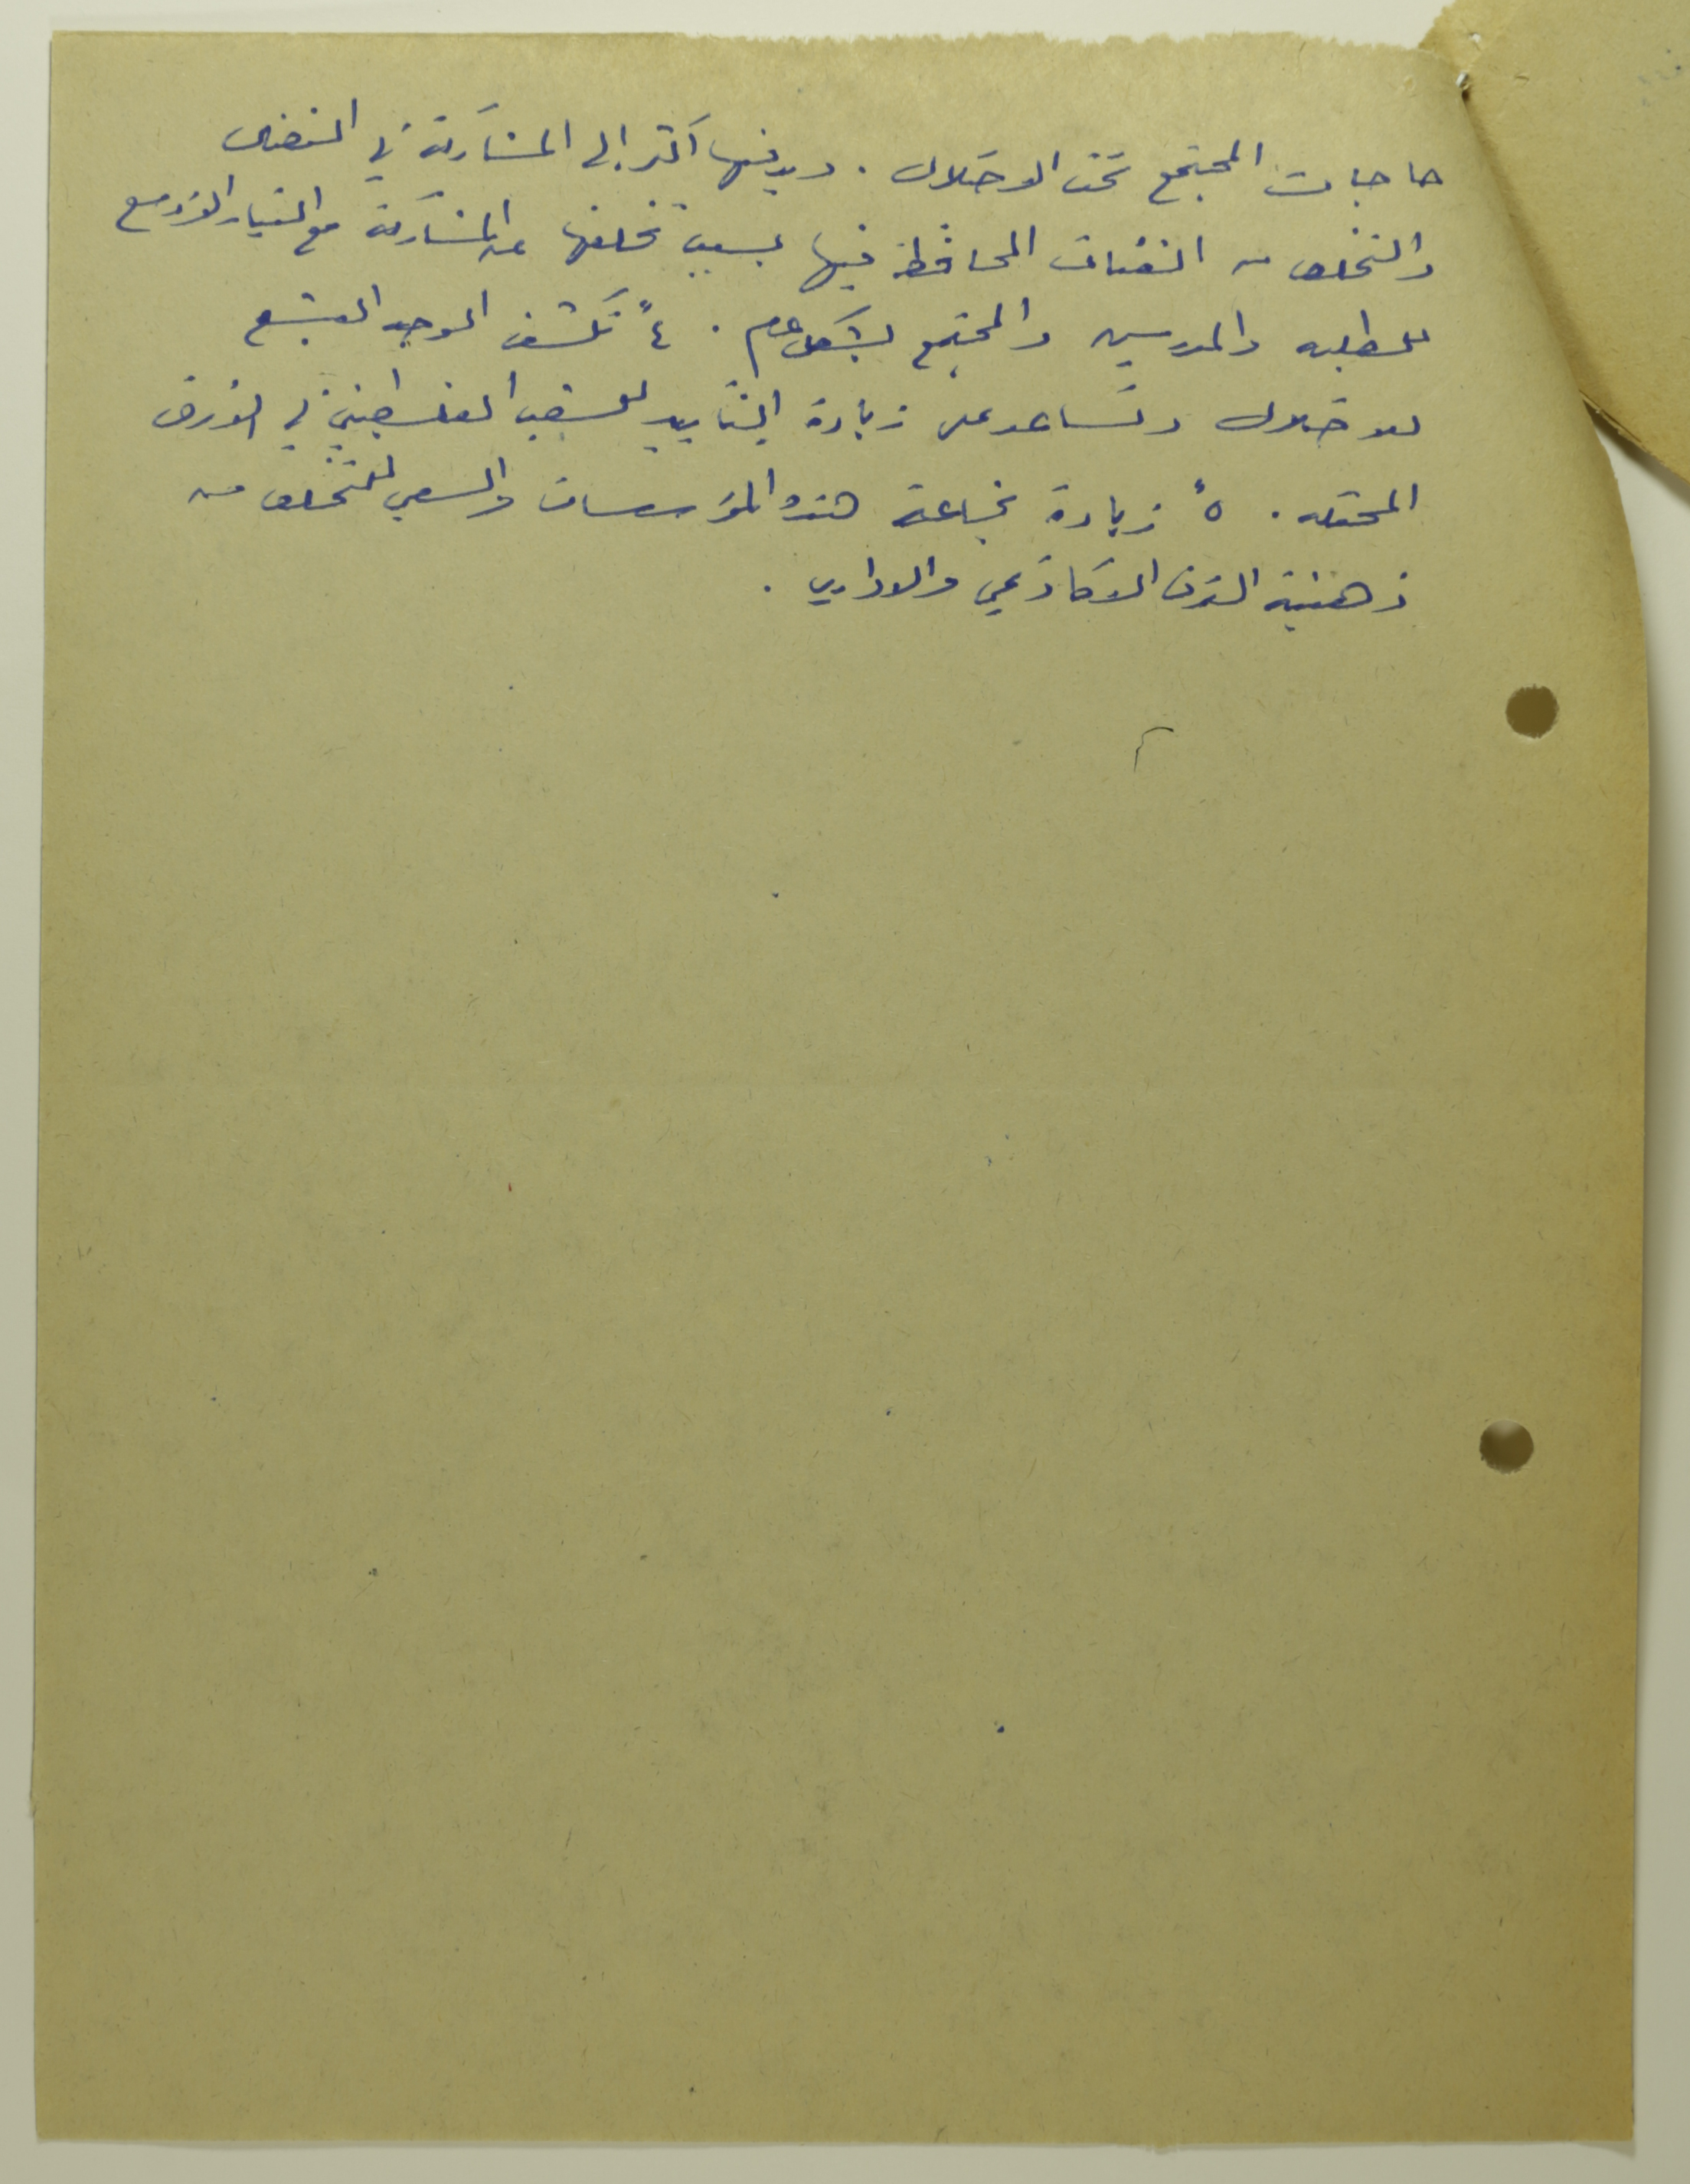 حاجات المجتمع تحت الاحتلال . ويدفعها اكثر إلى المشاركة في النضال
والتخلص من الفئات المحافظة فيها بسبب تخلفها عن المشاركة مع التيار الأوسع
للطلبه والمدرسين والمجتمع بشكل عام . ٤ً تكشف الوجه البشع
للاحتلال وتساعد على زيادة التأييد للشعب الفلسطيني في الأرض
المحتله . ٥ً زيادة نجاعة هذه المؤسسات والسعي للتخلص من
ذهنية الترف الاكاديمي والاداري .